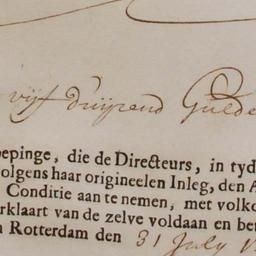 vijf duijzend Gulde
oepinge, die de Directeurs, in tyd
olgens haar origineelen Inleg, den A
Conditie aan te nemen, met volko
rklaart van de zelve voldaan en bet
n Rotterdam den 31 July